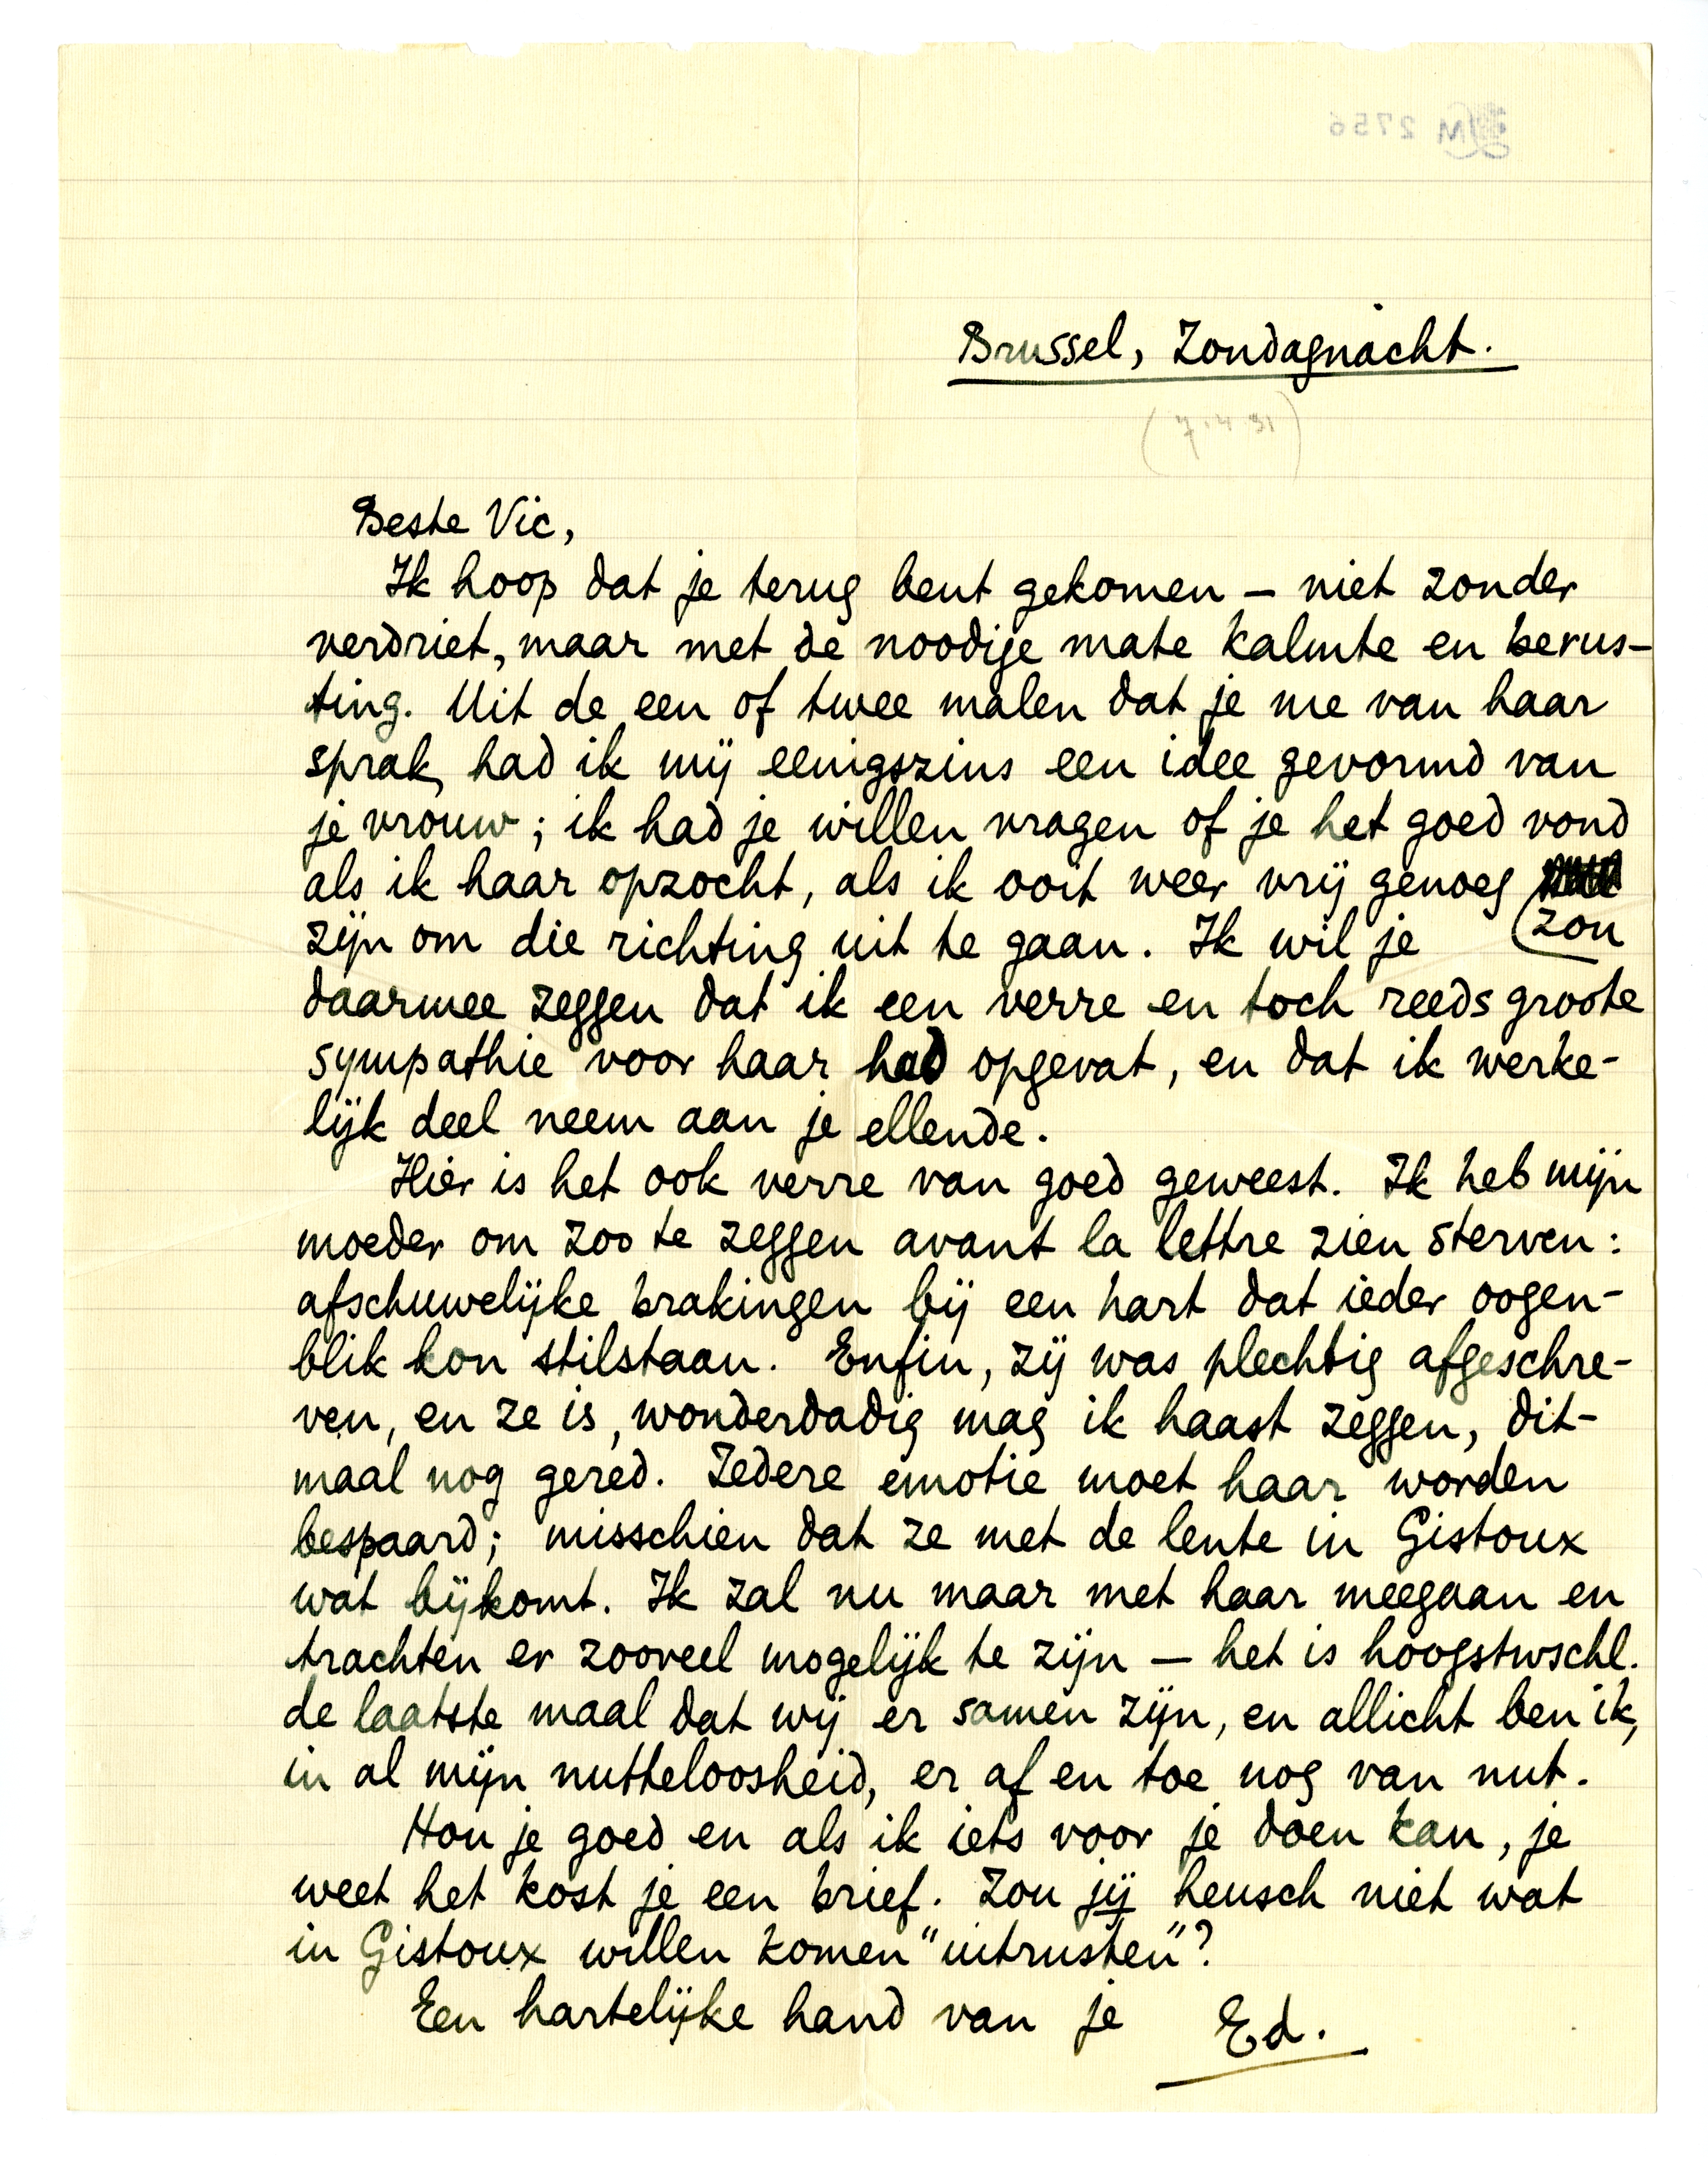 M 2756
Brussel, Zondagnacht.
(7.4.31)
Beste Vic,
Ik hoop dat je terug bent gekomen — niet zonder
verdriet, maar met de noodige mate kalmte en berus-
ting. Uit de een of twee malen dat je me van haar
sprak, had ik mij eenigszins een idee gevormd van
je vrouw; ik had je willen vragen of je het goed vond
als ik haar opzocht, als ik ooit weer vrij genoeg
zou
zijn om die richting uit te gaan. Ik wil je
daarmee zeggen dat ik een verre en toch reeds groote
sympathie voor haar had opgevat, en dat ik werke-
lijk deel neem aan je ellende.
Hier is het ook verre van goed geweest. Ik heb mijn
moeder om zoo te zeggen avant la lettre zien sterven:
afschuwelijke brakingen bij een hart dat ieder oogen-
blik kon stilstaan. Enfin, zij was plechtig afgeschre-
ven, en ze is, wonderdadig mag ik haast zeggen, dit-
maal nog gered. Iedere emotie moet haar worden
bespaard; misschien dat ze met de lente in Gistoux
wat bijkomt. Ik zal nu maar met haar meegaan en
trachten er zooveel mogelijk te zijn — het is hoogstwschl.
de laatste maal dat wij er samen zijn, en allicht ben ik,
in al mijn nutteloosheid, er af en toe nog van nut.
Hou je goed en als ik iets voor je doen kan, je
weet het kost je een brief. Zou jij heusch niet wat
in Gistoux willen komen "uitrusten"?
Een hartelijke hand van je Ed.